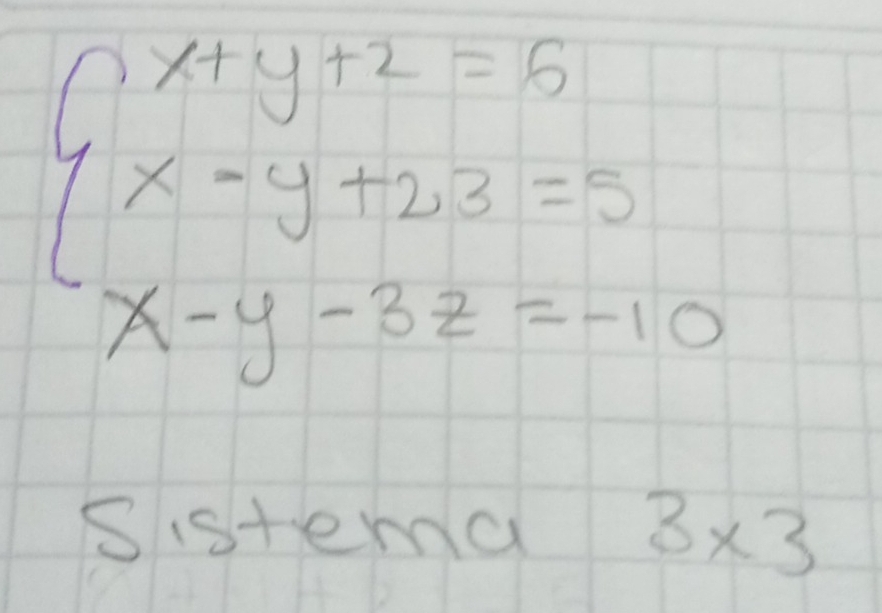 x+y+2 = 6
x-y+23 = 5
x-y-3z = -10
Sistema 3x3